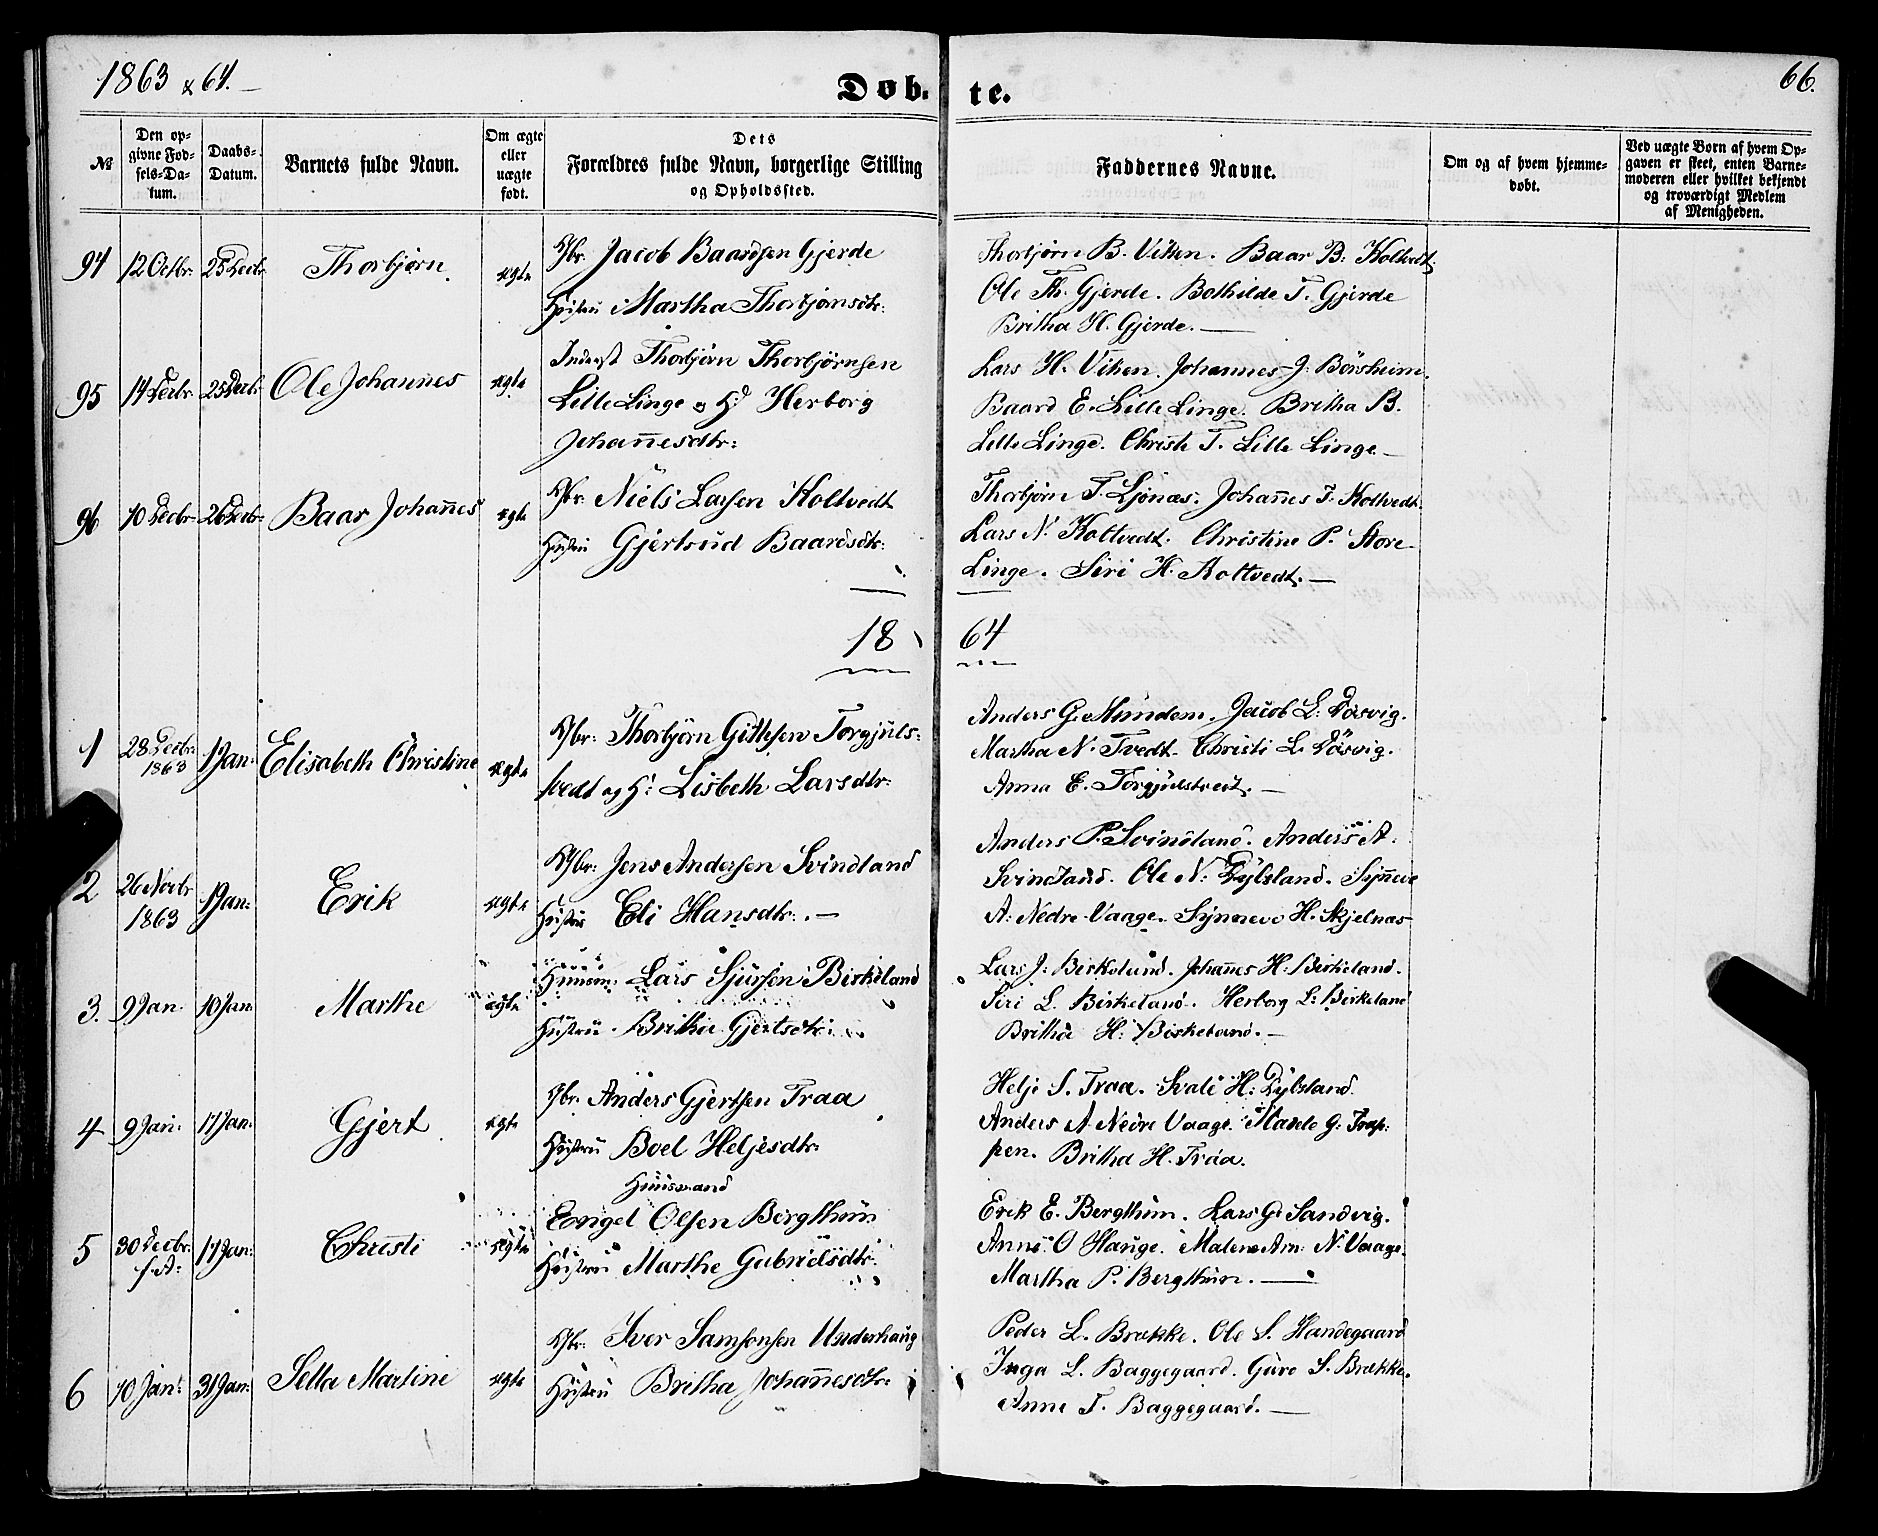 1863 & 64. —
Døb- te.
66.
№
Den op-
givne Fød-
sels-Da-
tum.
Daabs-
Datum.
Barnets fulde Navn.
Om ægte
eller
uægte
født.
Dets
Forældres fulde Navn, borgerlige Stilling
og Opholdssted.
Faddernes Navne.
Om og af hvem hjemme-
døbt.
Ved uægte Børn af hvem Op-
gaven er skeet, enten Barne-
moderen eller hvilket bekjendt
og troværdigt Medlem
af Menigheden.
94 12 Octbr. 25 Decbr. Thorbjørn ægte Gbr. Jacob Baardsen Gjerde
Hustru Martha Thorbjørnsdtr:
Thorbjørn B. Viken. Baar B. Holtvedt.
Ole Th. Gjerde. Bothilde T. Gjerde
Britha H. Gjerde. —
95 14 Decbr. 25 Decbr. Ole Johannes ægte Inderst Thorbjørn Thorbjørnsen
Lille Linge og H. Herborg
Johannesdtr:
Lars H. Viken. Johannes J. Börsheim.
Baard E. Lille Linge. Britha B.
Lille Linge. Christi T. Lille Linge —
96 10 Decbr. 26 Decbr. Baar Johannes ægte Gbr. Niels Larsen Holtvedt
Hustru Gjertrud Baardsdtr:
Thorbjørn T. Ljonæs. Johannes T. Holtvedt.
Lars N. Holtvedt. Christine P. Store
Linge. Siri H. Holtvedt. —
18 64
1 28 Decbr. 1863 1 Jan: Elisabeth Christine ægte Gbr: Thorbjørn Gitlesen Torgjuls-
tvedt og H: Lisbeth Larsdtr:
Anders G. Mundem. Jacob L. Døsvig.
Martha N. Tvedt. Christi L. Døsvig.
Anna E. Torgjulstvedt. —
2 26 Novbr 1863 1 Jan: Erik ægte Gbr: Jens Andersen Svindland
Hustru Eli Hansdtr: —
Anders P. Svindland. Anders A.
Svindland. Ole N. Dylsland. Synneve
A. Nedre Vaage. Synneve H. Skjelnæs
3. 9 Jan. 10 Jan: Marthe ægte Huusm. Lars Sjursen Birkeland
Hustru Britha Gjertsdtr:
Lars J. Birkeland. Johannes H. Birkeland.
Siri L. Birkeland. Herborg L. Birkeland
Britha H. Birkeland. —
4 9 Jan: 17 Jan: Gjert ægte Gbr. Anders Gjertsen Traa
Hustru Boel Heljesdtr:
Helje S. Traa. H: Dylsland.
Anders A Nedre Vaage. G. Trap-
pen. Britha H. Traa.
5 30 Decbr: f.A: 17 Jan: Christi ægte Huusmand
Engel Olsen Bergthun
Hustru Marthe Gabrielsdtr:
Erik E. Bergthun. Lars G. Sandvig.
Anne O Hauge. Malene Arn: N. Vaage.
Martha P. Bergthun. —
6 10 Jan: 31 Jan: Sella Martine ægte Gbr: Iver Samsonsen Underhaug
Hustru Britha Johannesdtr:
Peder L. Brække. Ole S. Handegaard
Inga L. Baggegaard. Guro S. Brække.
Anne T. Baggegaard. —